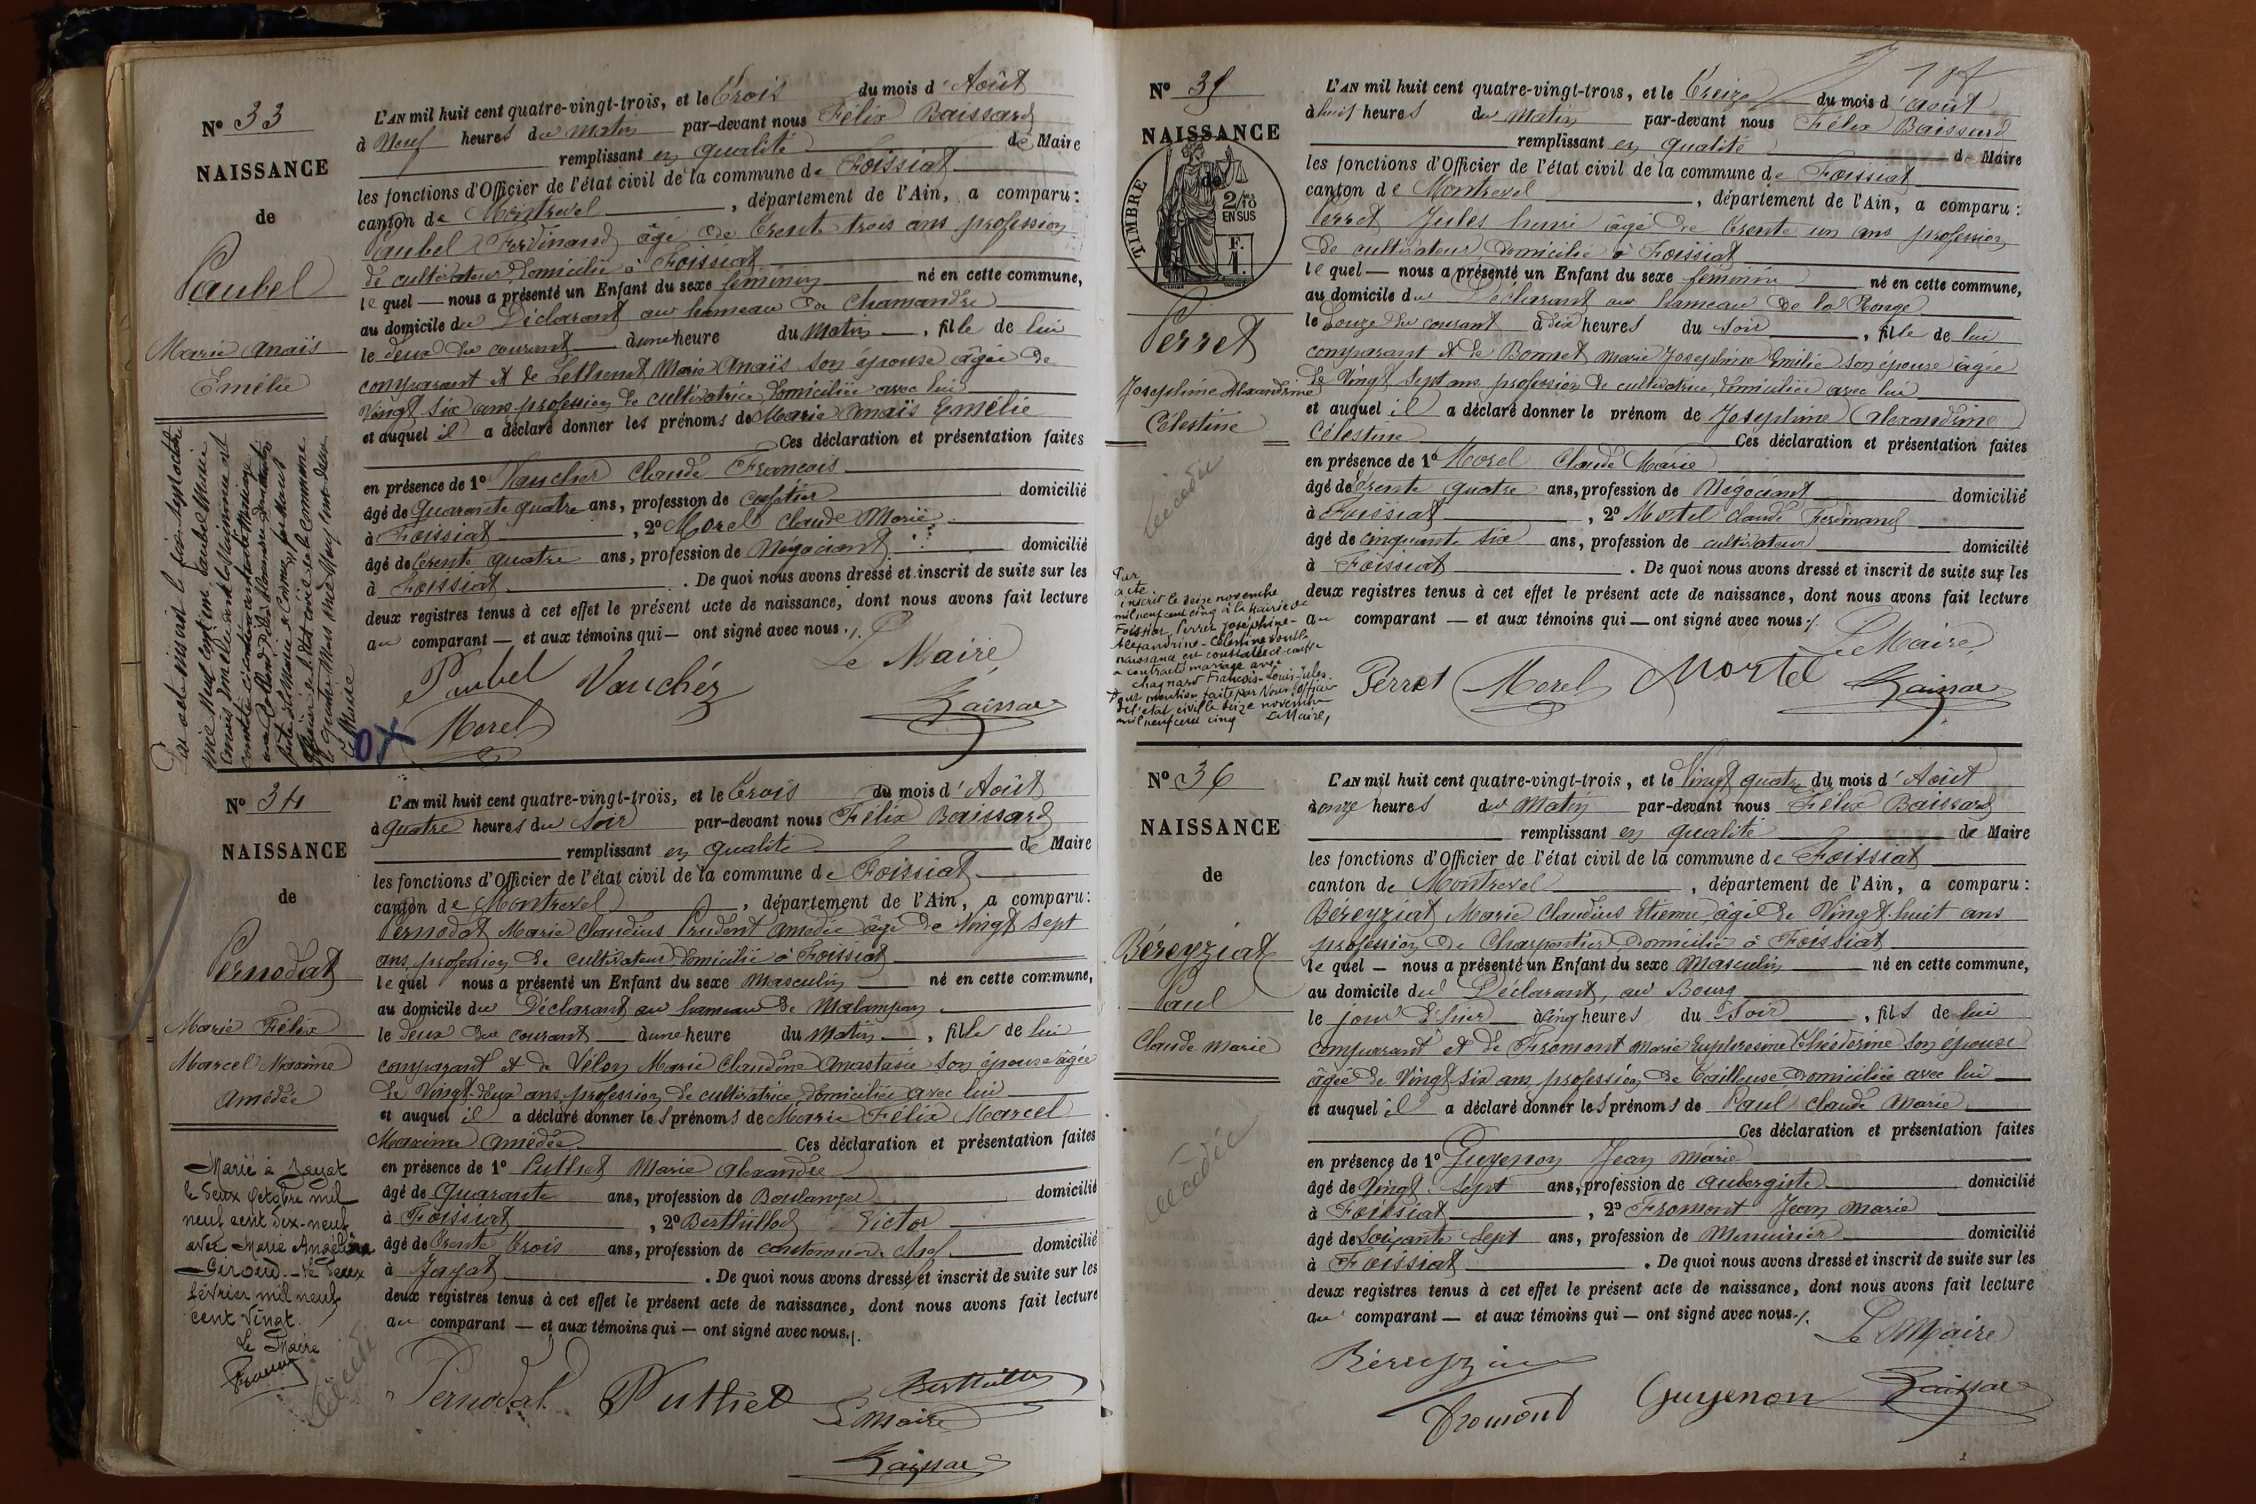 N° 33
NAISSANCE
de
Paubel
Marie Anaïs
Emélie
L'AN mil huit cent quatre-vingt-trois, et le Trois du mois d'Août
à Neuf heures du matin par-devant nous Félix Baissard
remplissant en qualité de Maire
les fonctions d'Officier de l'état civil de la commune de Foissiat
canton de Montrevel, département de l'Ain, a comparu :
Paubel Ferdinand âgé de trente trois ans profession
de cultivateur domicilié à Foissiat
lequel — nous a présenté un Enfant du sexe féminin né en cette commune,
au domicile du Déclarant au hameau de Chamandre
le deux du courant à une heure du matin, fille de lui
comparant et de Marie Anaïs son épouse âgée de
vingt six ans profession de cultivatrice domiciliée avec lui
et auquel il a déclaré donner les prénoms de Marie Anaïs Emélie
Ces déclaration et présentation faites
en présence de 1° Vaucher Claude François
âgé de quarante quatre ans, profession de domicilié
à Foissiat, 2° Morel Claude Marie
âgé de trente quatre ans, profession de Négociant domicilié
à Foissiat. De quoi nous avons dressé et inscrit de suite sur les
deux registres tenus à cet effet le présent acte de naissance, dont nous avons fait lecture
au comparant — et aux témoins qui — ont signé avec nous ./.
Le Maire
Paubel Vaucher
Morel Baissard
N° 34
NAISSANCE
de
Pernodat
Marie Félix
Marcel Maxime
Amédée
Marié à Jayat
le deux octobre mil
neuf cent dix-neuf
avec Marie Angéline
Giroud. - le deux
février mil neuf
cent vingt.
Le Maire
décédé
L'AN mil huit cent quatre-vingt-trois, et le Trois du mois d'Août
à quatre heures du soir par-devant nous Félix Baissard
remplissant en qualité de Maire
les fonctions d'Officier de l'état civil de la commune de Foissiat
canton de Montrevel, département de l'Ain, a comparu :
Pernodat Marie Claudius Prudent Amédée âgé de Vingt sept
ans profession de cultivateur domicilié à Foissiat
lequel nous a présenté un Enfant du sexe Masculin né en cette commune,
au domicile du Déclarant au hameau de
le deux du courant à une heure du matin, fille de lui
comparant et de Vélon Marie Claudine Anastasie son épouse âgée
de Vingt-deux ans profession de cultivatrice domiciliée avec lui
et auquel il a déclaré donner les prénoms de Marie Félix Marcel
Maxime Amédée Ces déclaration et présentation faites
en présence de 1° Puthet Marie Alexandre
âgé de quarante ans, profession de Boulanger domicilié
à Foissiat, 2° Berthillod Victor
âgé de trente trois ans, profession de cantonnier chef domicilié
à Jayat. De quoi nous avons dressé et inscrit de suite sur les
deux registres tenus à cet effet le présent acte de naissance, dont nous avons fait lecture
au comparant — et aux témoins qui — ont signé avec nous ./.
Pernodat Puthet
Le Maire
Baissard
N° 35
NAISSANCE
de
TIMBRE
2/10
EN SUS
F.
1.
Perret
Joséphine Alexandrine
Célestine
décédée
Par
acte
inscrit le seize novembre
mil neuf cent cinq à la Mairie de
Foissiat, Perret Joséphine-
Alexandrine-Célestine dont la
naissance est constatée ci-contre
a contracté mariage avec
Chagnard François-Louis-Jules.
Pour mention faite par Nous Officier
de l'état civil le seize novembre
mil neuf cent cinq Le Maire,
L'AN mil huit cent quatre-vingt-trois, et le Treize du mois d'août
à huit heures du matin par-devant nous Félix Baissard
remplissant en qualité de Maire
les fonctions d'Officier de l'état civil de la commune de Foissiat
canton de Montrevel, département de l'Ain, a comparu :
Perret Jules henri âgé de trente un ans profession
de cultivateur domicilié à Foissiat
lequel — nous a présenté un Enfant du sexe féminin né en cette commune,
au domicile du Déclarant au hameau de la Ronge
le Douze du courant à dix heures du soir, fille de lui
comparant et de Bonnet Marie Joséphine Emilie son épouse âgée
de Vingt sept ans profession de cultivatrice domiciliée avec lui
et auquel il a déclaré donner le prénom de Joséphine Alexandrine
Célestine Ces déclaration et présentation faites
en présence de 1° Morel Claude Marie
âgé de trente quatre ans, profession de Négociant domicilié
à Foissiat, 2° Mortel Claude Ferdinand
âgé de cinquante six ans, profession de cultivateur domicilié
à Foissiat. De quoi nous avons dressé et inscrit de suite sur les
deux registres tenus à cet effet le présent acte de naissance, dont nous avons fait lecture
au comparant — et aux témoins qui — ont signé avec nous ./.
Le Maire
Perret Morel Mortel Baissard
N° 36
NAISSANCE
de
Béreyziat
Paul
Claude Marie
décédé
L'AN mil huit cent quatre-vingt-trois, et le Vingt quatre du mois d'Août
à onze heures du Matin par-devant nous Félix Baissard
remplissant en qualité de Maire
les fonctions d'Officier de l'état civil de la commune de Foissiat
canton de Montrevel, département de l'Ain, a comparu :
Béreyziat Marie Claudius Etienne âgé de Vingt huit ans
profession de Charpentier domicilié à Foissiat
lequel — nous a présenté un Enfant du sexe Masculin né en cette commune,
au domicile du Déclarant, au Bourg
le jour d'hier à cinq heures du soir, fils de lui
comparant et de Fromont Marie son épouse
âgée de Vingt six ans profession de Tailleuse domiciliée avec lui
et auquel il a déclaré donner les prénoms de Paul Claude Marie
Ces déclaration et présentation faites
en présence de 1° Guyenon Jean Marie
âgé de Vingt sept ans, profession de aubergiste domicilié
à Foissiat, 2° Fromont Jean Marie
âgé de soixante sept ans, profession de Menuisier domicilié
à Foissiat. De quoi nous avons dressé et inscrit de suite sur les
deux registres tenus à cet effet le présent acte de naissance, dont nous avons fait lecture
au comparant — et aux témoins qui — ont signé avec nous ./.
Le Maire
Béreyziat
Fromont Guyenon Baissard